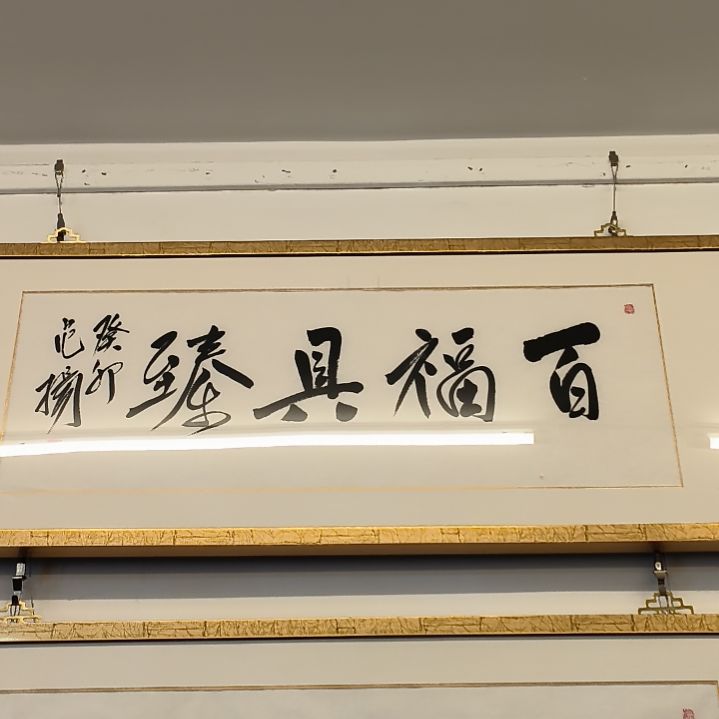 百福具臻
癸卯
范揚